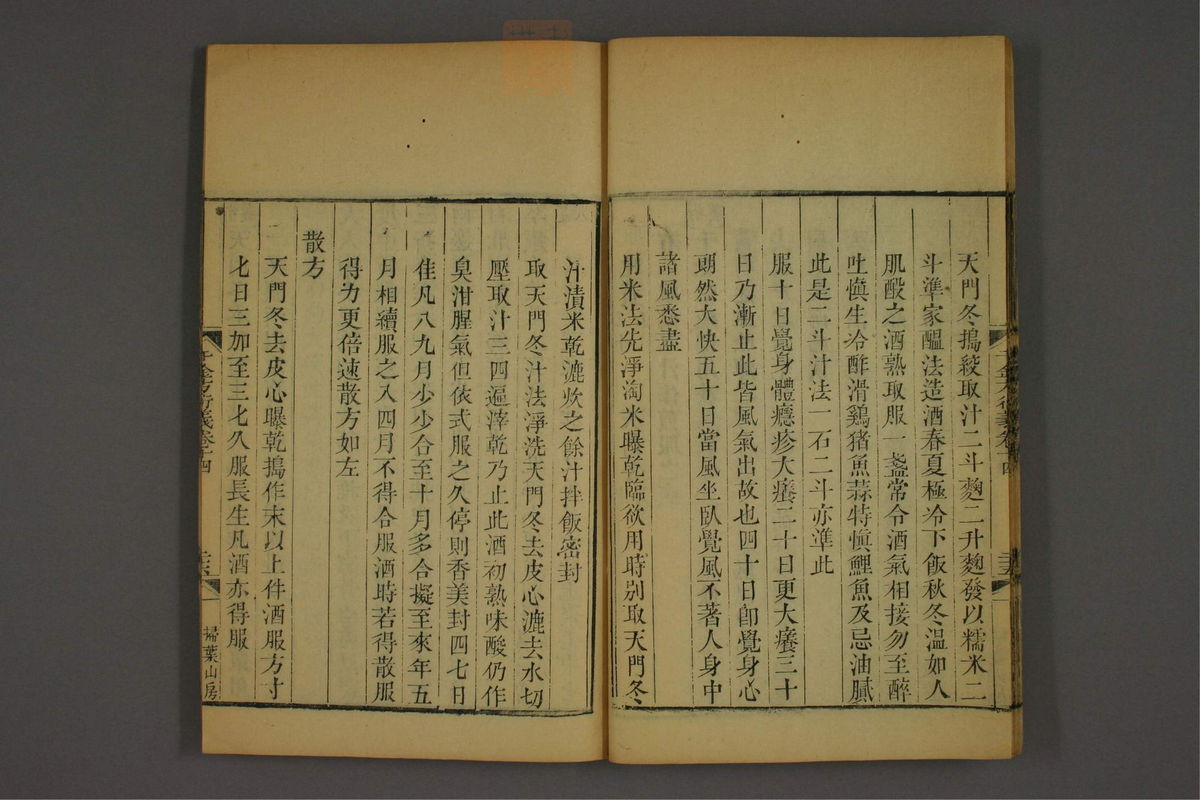 天門冬搗絞取汁二斗麴二升麴發以糯米二
斗準家醞法造酒春夏極冷下飯秋冬溫如人
肌酘之酒熟取服一盞常令酒氣相接勿至醉
吐慎生冷酢滑鷄猪魚蒜特慎鯉魚及忌油膩
此是二斗汁法一石二斗亦準此
服十日覺身體癮疹大癢二十日更大癢三十
日乃漸止此皆風氣出故也四十日卽覺身心
朗然大快五十日當風坐臥覺風不著人身中
諸風悉盡
用米法先淨淘米曝乾臨欲用時別取天門冬
汁漬米乾漉炊之餘汁拌飯密封
取天門冬汁法淨洗天門冬去皮心漉去水切
壓取汁三四遍滓乾乃止此酒初熟味酸仍作
臭泔腥氣但依式服之久停則香美封四七日
佳凡八九月少少合至十月多合擬至來年五
月相續服之入四月不得合服酒時若得散服
得力更倍速散方如左
散方
天門冬去皮心曝乾搗作末以上件酒服方寸
匕日三加至三匕久服長生凡酒亦得服
千金方衍義卷十四
掃葉山房